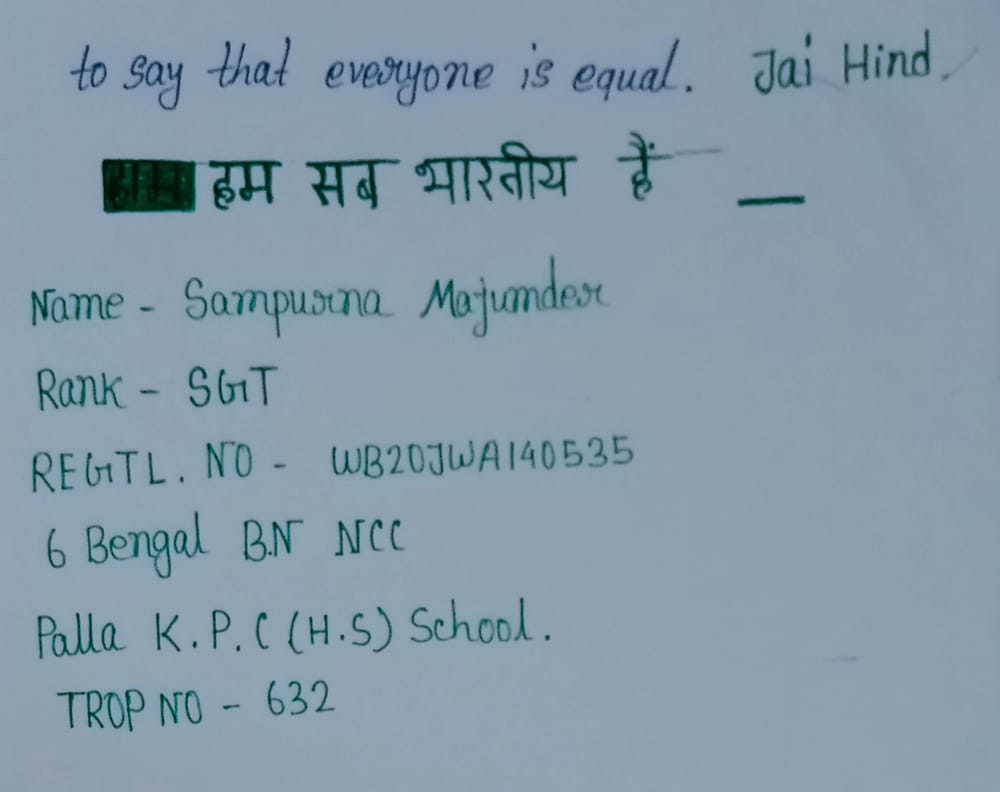 to say that everyone is equal. Jai Hind.
हम सब भारतीय हैं _
Name - Sampurna Majumder
Rank - SGT
REGTL. NO - WB20JWA140535
6 Bengal B.N NCC
Palla K.P.C (H.S) School.
TROP NO - 632